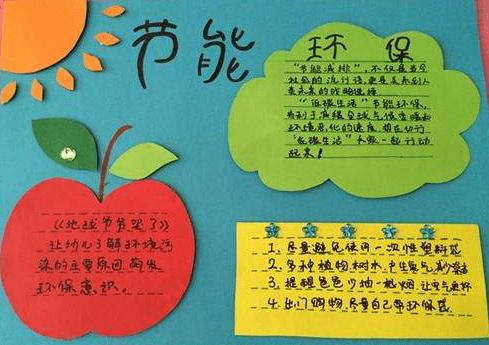 节能
环 保
“节能减排”，不仅是当今
社会的流行语，更是关系到人
类未来的战略选择
“低碳生活”节能环保，
有利于减缓全球气候变暖和
环境恶化的速度，
“低碳生活” 一起行动
起来！
《地球爷爷哭了》
让幼儿了解环境污
染的主要原因，萌发
环保意识。
1. 尽量避免使用一次性塑料袋
2. 多种植物，树木，产生氧气，减少
3. 提醒爸爸少抽一根烟，让空气更好
4. 出门购物，尽量自己带环保袋